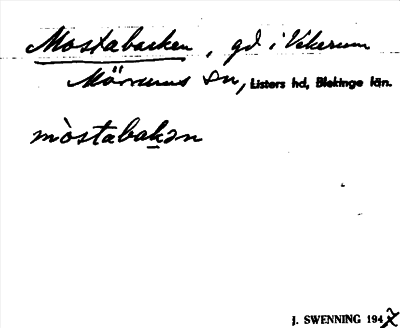 Mostabacken, gd i Vekerum
Mörrums sn, Listers hd, Blekinge län.
mòstabakən
J. SWENNING 194